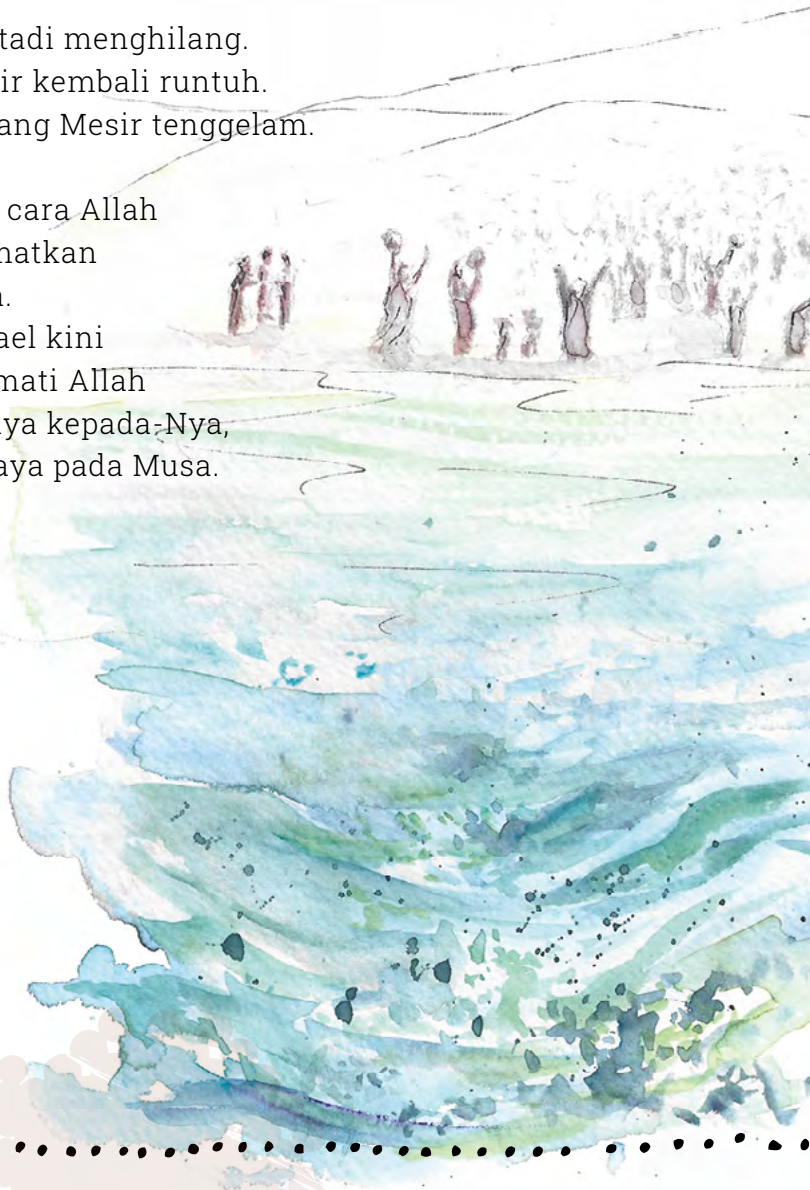 tadi menghilang.
ir kembali runtuh.
ang Mesir tenggelam.
cara Allah
matkan
ael kini
mati Allah
ya kepada-Nya,
aya pada Musa.